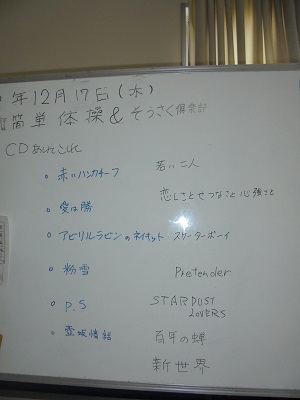 年12月17日(水)
簡単体操&そうさく倶楽部
CDあれこれ
赤いハンカチーフ 若い二人
恋しさとせつなさと心強さと
愛は勝
アビリルラビンのネイキッド スケーターボーイ
粉雪 Pretender
P.S STARDUST
LOVERS
坂情話 百年の蝉
新世界